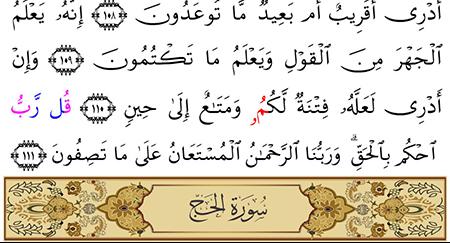 أَدْرِىٓ أَقَرِيبٌ أَم بَعِيدٌ مَّا تُوعَدُونَ ﴿١٠٨﴾ إِنَّهُۥ يَعْلَمُ
ٱلْجَهْرَ مِنَ ٱلْقَوْلِ وَيَعْلَمُ مَا تَكْتُمُونَ ﴿١٠٩﴾ وَإِنْ
أَدْرِى لَعَلَّهُۥ فِتْنَةٌ لَّكُمُۥ وَمَتَٰعٌ إِلَىٰ حِينٍ ﴿١١٠﴾ قُل رَّبُّ
ٱحْكُم بِٱلْحَقِّ ۗ وَرَبُّنَا ٱلرَّحْمَٰنُ ٱلْمُسْتَعَانُ عَلَىٰ مَا تَصِفُونَ ﴿١١١﴾
سُورَةُ الحَجِّ